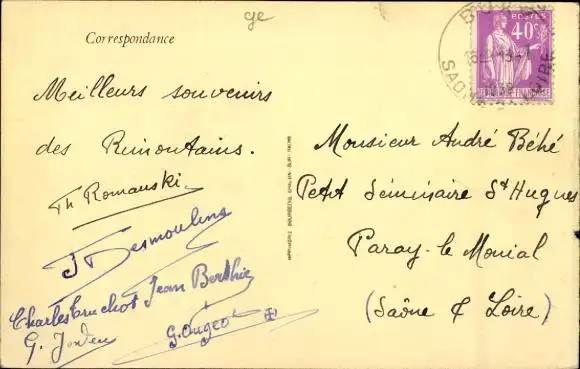 ge
Correspondance
Meilleurs souvenirs
des Rimontains.
Th Romanski
J Desmoulins
Charles Truchot Jean Berthie
G. Ougeot
POSTES
40c
SAONE ET LOIRE
Monsieur André Béhé
Petit Séminaire St Hugues
Paray-le Monial
(Saône & Loire)